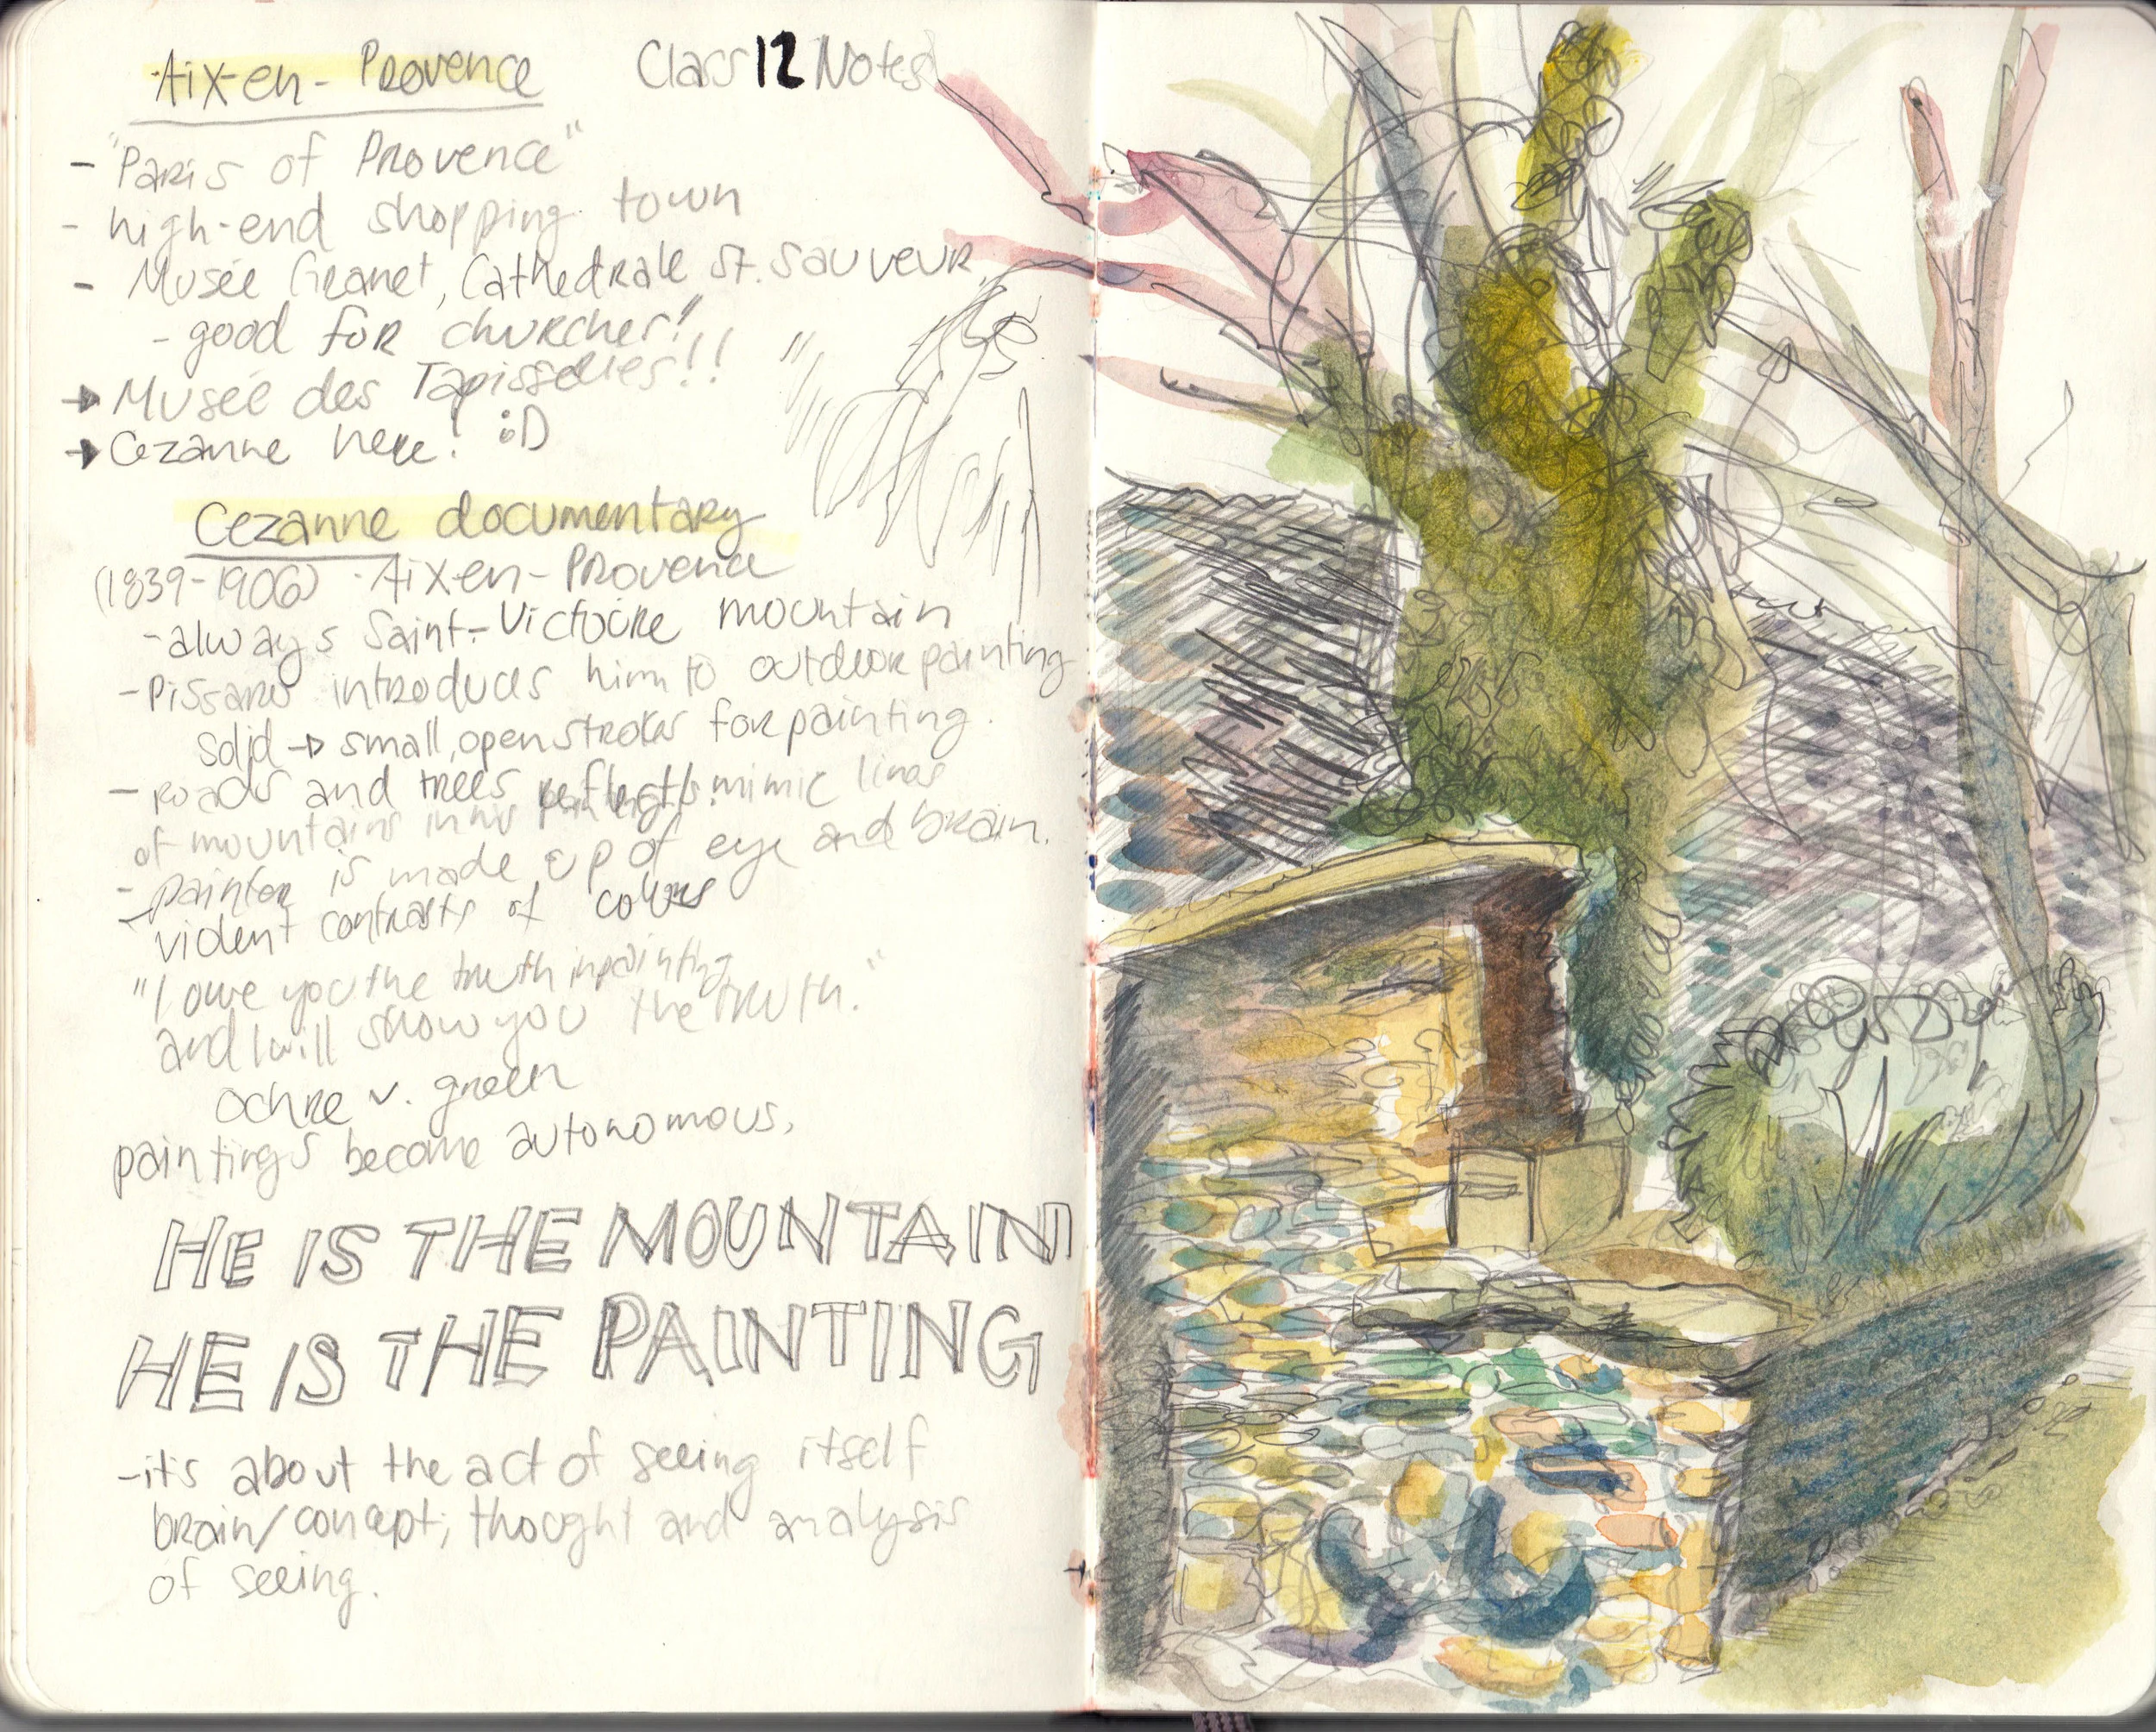 Aix-en-Provence Class 12 Notes
- "Paris of Provence"
- high-end shopping town
- Musée Granet, Cathedrale St. Sauveur,
- good for churches!"
→ Musée des Tapisseries!!
→ Cezanne here! :D
Cezanne documentary
(1839-1906) · Aix-en-Provence
- always Saint-Victoire mountain
- Pissarro introduces him to outdoor painting
solid → small, open strokes for painting.
- roads and trees reflect/mimic lines
of mountains in his paintings.
- painter is made up of eye and brain.
- violent contrasts of colors
"I owe you the truth in painting
and I will show you the truth."
ochre v. green
paintings become autonomous,
HE IS THE MOUNTAIN
HE IS THE PAINTING
- it's about the act of seeing itself
brain/concept; thought and analysis
of seeing.